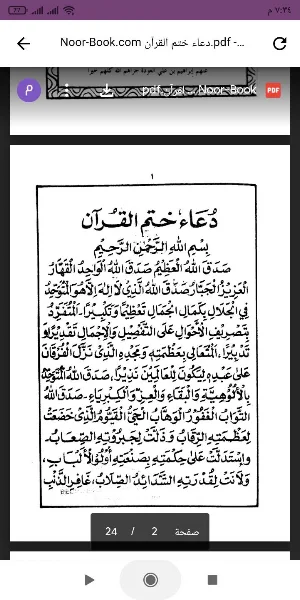 ٧:٣٤ م
Noor-Book.com دعاء ختم القرآن.pdf -...
Noor-Book
PDF
P
١
دُعَاءُ خَتْمِ الْقُرْآنِ
بِسْمِ اللهِ الرَّحْمٰنِ الرَّحِيْمِ
صَدَقَ اللهُ الْعَظِيْمُ صَدَقَ اللهُ الْوَاحِدُ الْقَهَّارُ
الْعَزِيْزُ الْجَبَّارُ صَدَقَ اللهُ الَّذِيْ لَا اِلٰهَ اِلَّا هُوَ الْمُتَوَحِّدُ
فِي الْجَلَالِ بِكَمَالِ الْجَمَالِ تَعْظِيْمًا وَتَكْبِيْرًا. الْمُتَفَرِّدُ
بِتَصْرِيْفِ الْاَحْوَالِ عَلَى التَّفْصِيْلِ وَالْاِجْمَالِ تَقْدِيْرًا وَ
تَدْبِيْرًا. الْمُتَعَالِيْ بِعَظَمَتِهِ وَمَجْدِهِ الَّذِيْ نَزَّلَ الْفُرْقَانَ
عَلٰى عَبْدِهِ لِيَكُوْنَ لِلْعَالَمِيْنَ نَذِيْرًا. صَدَقَ اللهُ
بِالْاُلُوْهِيَّةِ وَالْبَقَاءِ وَالْعِزِّ وَالْكِبْرِيَاءِ. صَدَقَ اللهُ
التَّوَّابُ الْغَفُوْرُ الْوَهَّابُ الْحَيُّ الْقَيُّوْمُ الَّذِيْ خَضَعَتْ
لِعَظَمَتِهِ الرِّقَابُ وَذَلَّتْ لِجَبَرُوْتِهِ الصِّعَابُ.
وَاسْتَدَلَّتْ عَلٰى حِكْمَتِهِ بِصَنْعَتِهِ اُولُوا الْاَلْبَابِ،
وَلَانَتْ لِقُدْرَتِهِ الشَّدَائِدُ الصِّلَابُ، غَافِرِ الذَّنْبِ
صفحة 2 / 24